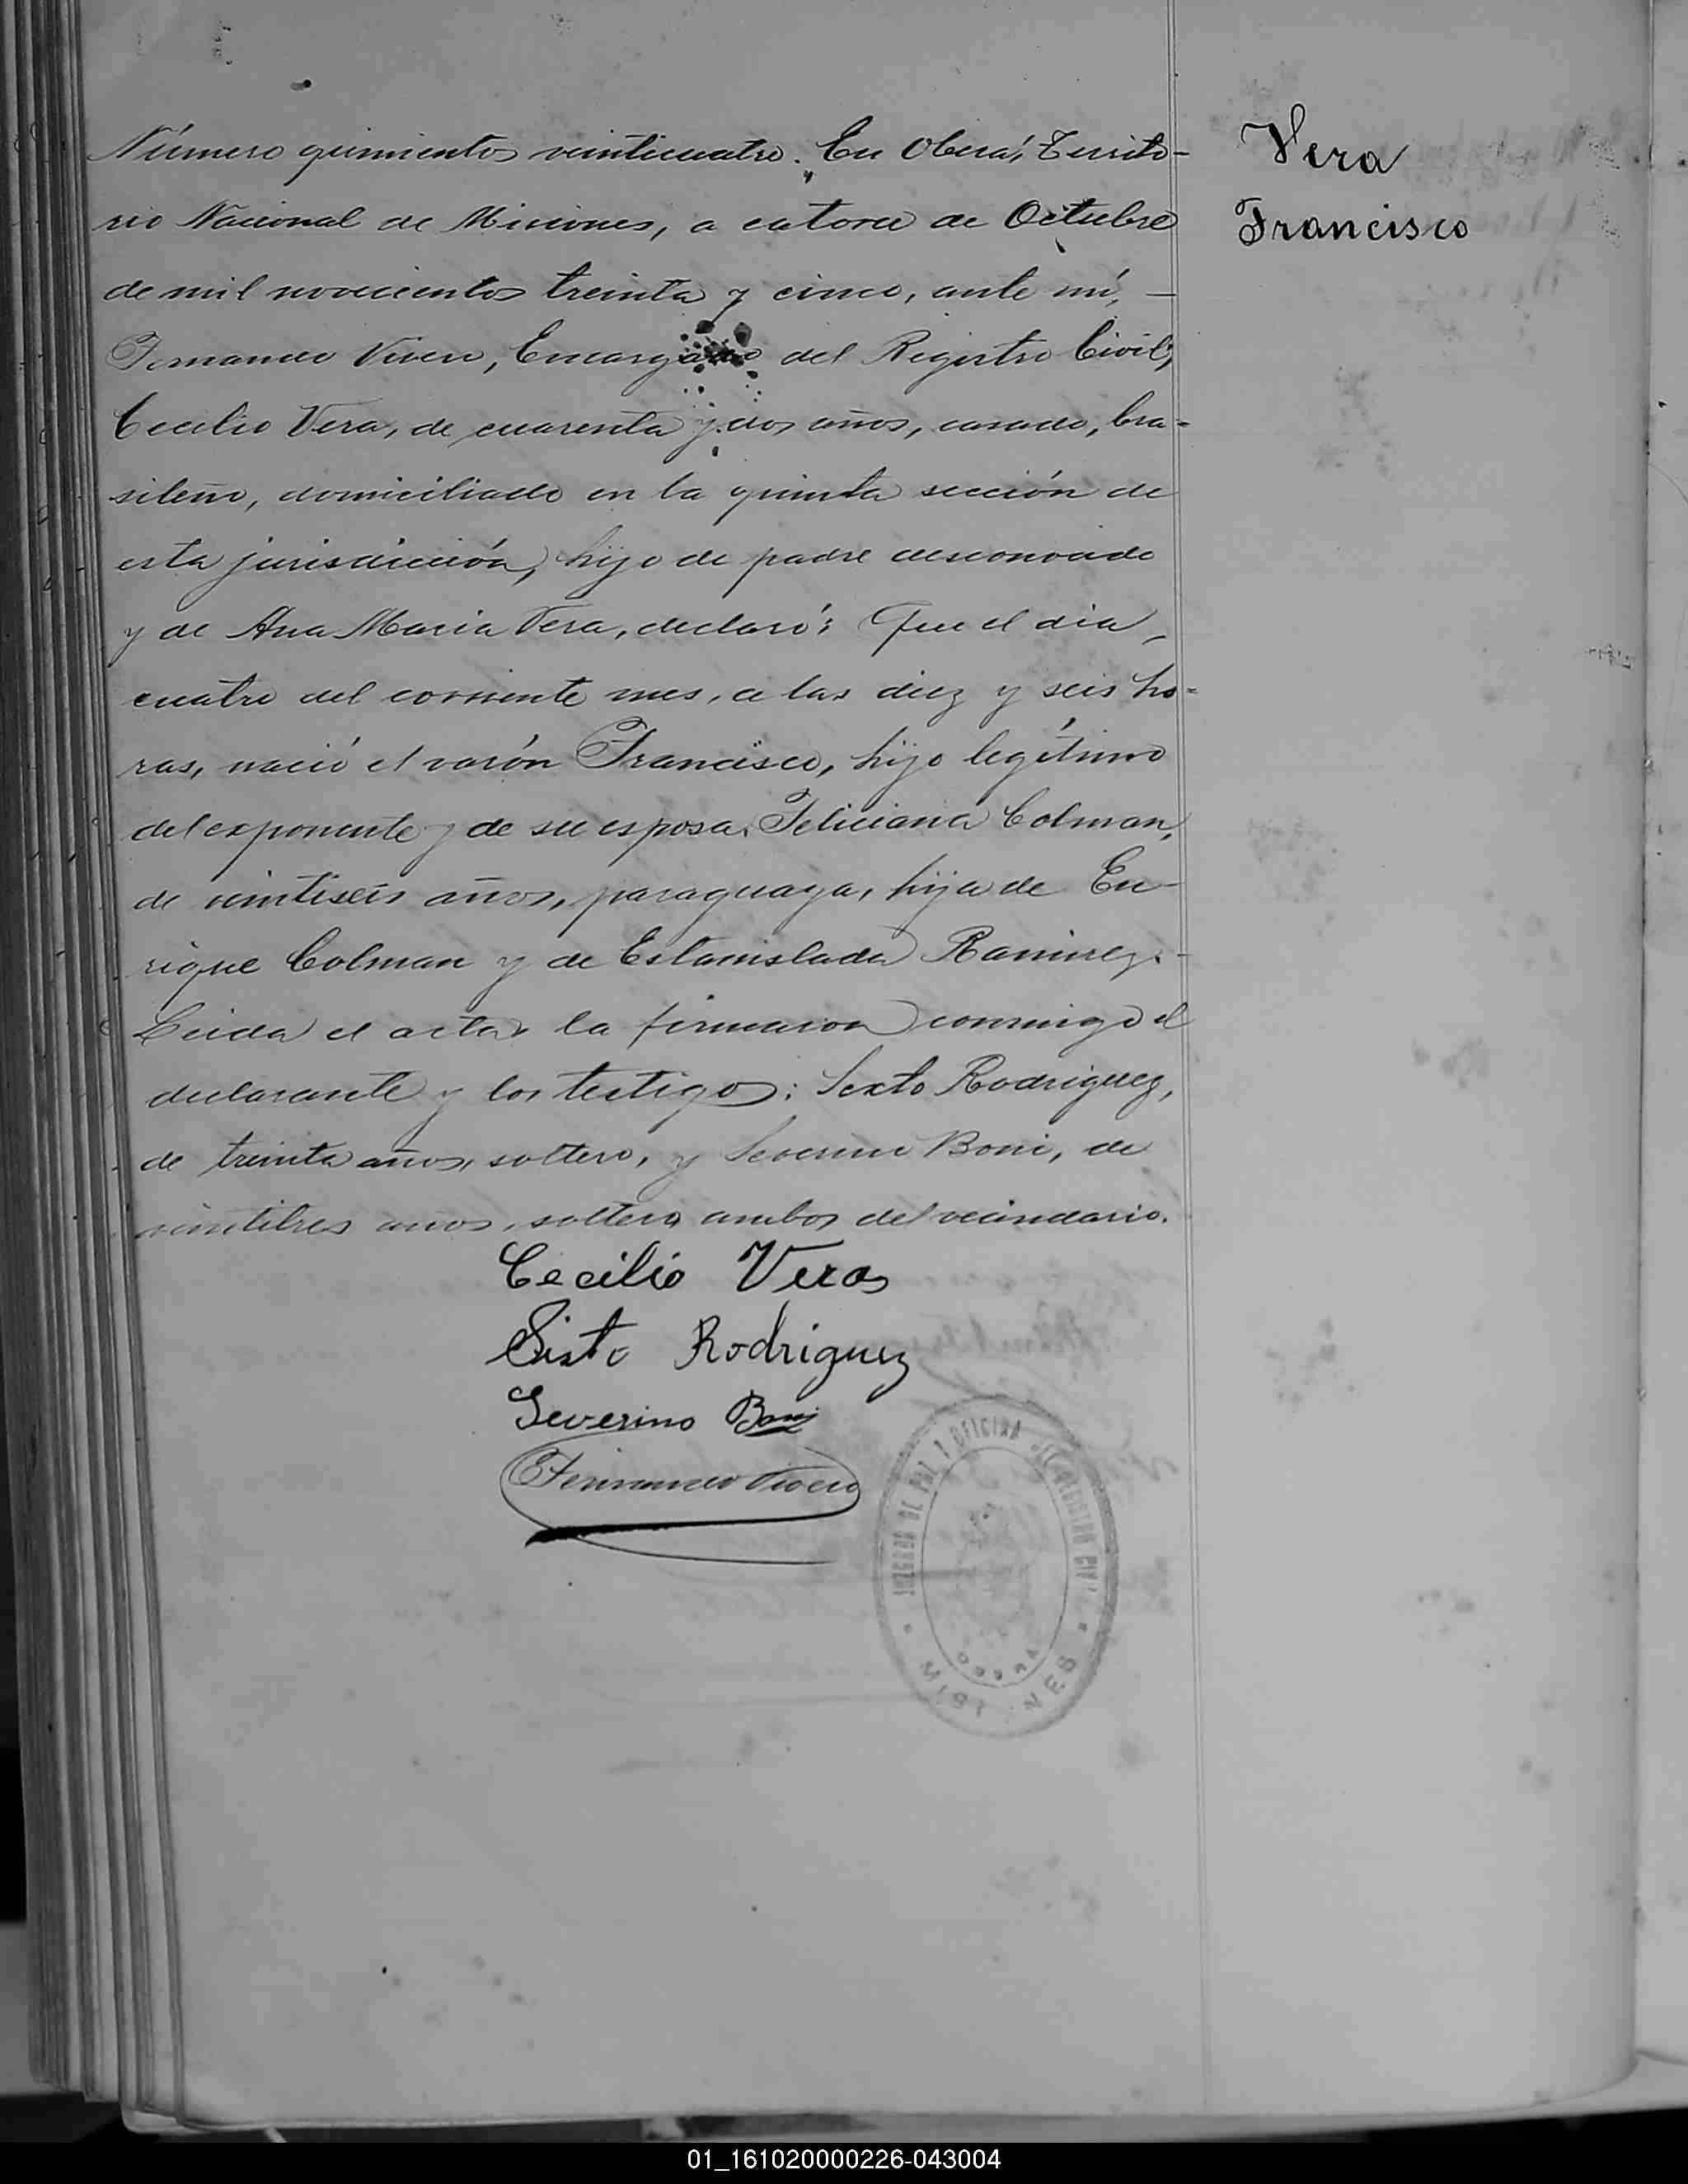 Número quinientos veinticuatro. En Oberá, Territo-
rio Nacional de Misiones, a catorce de Octubre
de mil novecientos treinta y cinco, ante mí,
Fernando Vivero, Encargado del Registro Civil,
Cecilio Vera, de cuarenta y dos años, casado, bra-
sileño, domiciliado en la quinta sección de
esta jurisdicción, hijo de padre desconocido
y de Ana Maria Vera, declaró: Que el dia
cuatro del corriente mes, a las diez y seis ho-
ras, nació el varón Francisco, hijo legítimo
del exponente y de su esposa Feliciana Colman,
de veintiseis años, paraguaya, hija de En-
rique Colman y de Estanislada Ramirez.
Leida el acta la firmaron conmigo el
declarante y los testigos: Sexto Rodriguez,
de treinta años, soltero, y Severino Boni, de
veintitres años, soltero, ambos del vecindario.
Cecilio Vera
Sisto Rodriguez
Severino Boni
Fernando Vivero
JUZGADO DE PAZ Y OFICINA DEL REGISTRO CIVIL
OBERA
MISIONES
Vera
Francisco
01_161020000226-043004